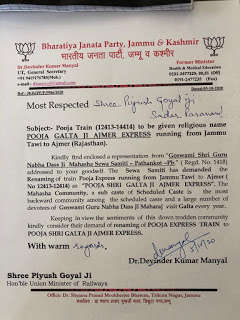 Bharatiya Janata Party, Jammu & Kashmir
भारतीय जनता पार्टी, जम्मू व कश्मीर
Dr.Devinder Kumar Manyal
UT, General Secretary
Former Minister
Health & Medical Education
Most Respected Shree Piyush Goyal Ji
Sadar Paranam!
Subject:- Pooja Train (12413-14414) to be given religious name
POOJA GALTA JI AJMER EXPRESS running from Jammu
Tawi to Ajmer (Rajasthan).
Kindly find enclosed a representation from "Goswami Shri Guru
Nabha Dass Ji Mahasha Sewa Samiti - Pathankot -Pb" (Regd. No. 5418)
addressed to your goodself. The Sewa Samiti has demanded the
Renaming of train Pooja Express running from Jammu Tawi to Ajmer (
No 12413-12414) as "POOJA SHRI GALTA JI AJMER EXPRESS". The
Mahasha Community, a sub caste of Scheduled Caste is the most
backward community among the scheduled caste and a large number of
devotees of Goswami Guru Nabha Dass Ji Mahasha visit Galta every year.
Keeping in view the sentiments of this down trodden community
kindly consider their demand of renaming of POOJA EXPRESS TRAIN to
POOJA SHRI GALTA JI AJMER EXPRESS.
With warm regards,
Dr.Devinder Kumar Manyal
Shree Piyush Goyal Ji
Hon'ble Union Minister of Railways
Office: Dr. Shyama Prasad Mookherjee Bhawan, Trikuta Nagar, Jammu